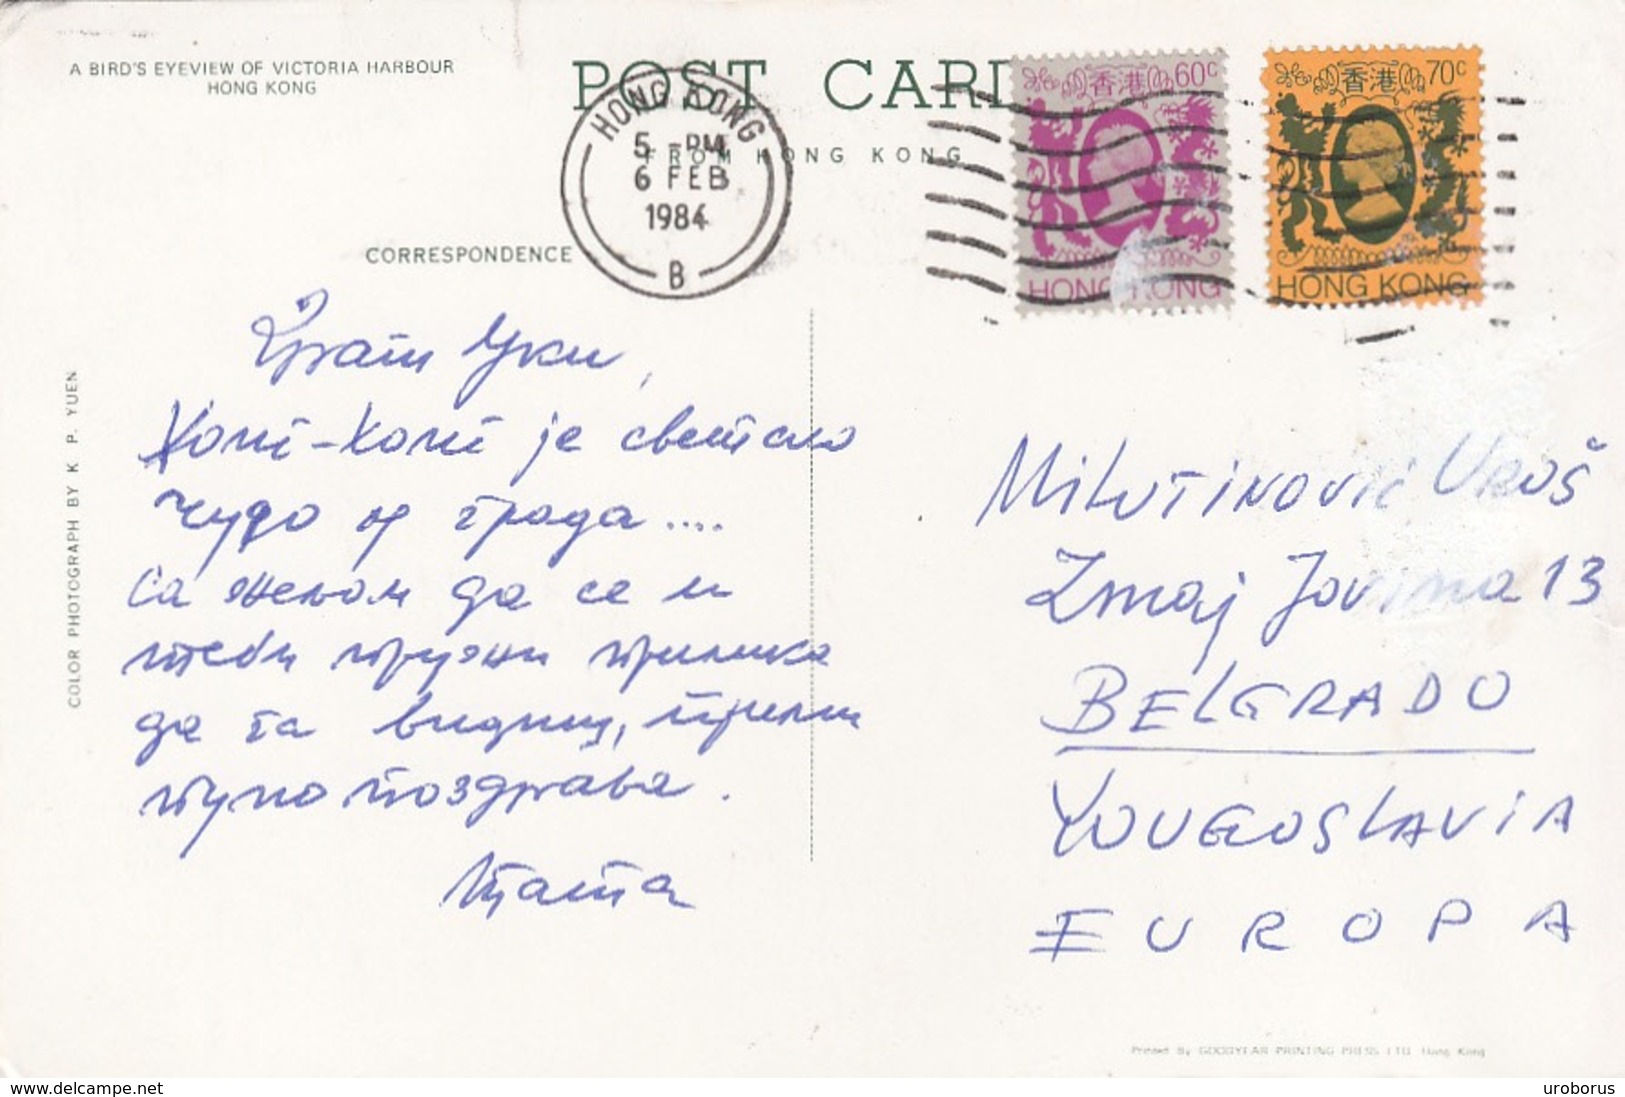 A BIRD'S EYEVIEW OF VICTORIA HARBOUR
HONG KONG
POST CARD
FROM HONG KONG
HONG KONG
5 - PM
6 FEB
1984
B
香港 60c
HONG KONG
香港 70c
HONG KONG
CORRESPONDENCE
COLOR PHOTOGRAPH BY K. P. YUEN
Драги Уки,
Хонг-Конг је светско
чудо од града....
Са жељом да се и
теби пружи прилика
да га видиш, прими
пуно поздрава.
Тата
Milutinović Uroš
Zmaj Jovina 13
BELGRADO
YOUGOSLAVIA
EUROPA
Printed By GOODYEAR PRINTING PRESS LTD. Hong Kong
www.delcampe.net
uroborus